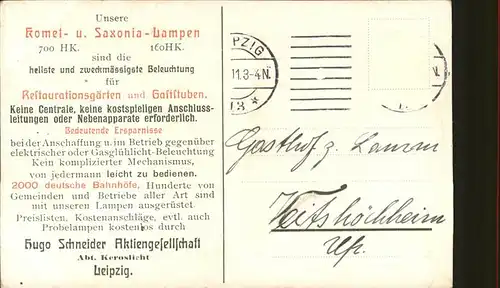 Unsere
Komet- u. Saxonia-Lampen
700 HK. 160HK.
sind die
hellste und zweckmässigste Beleuchtung
für
Restaurationsgärten und Gaststuben.
Keine Centrale, keine kostspieligen Anschluss-
leitungen oder Nebenapparate erforderlich.
Bedeutende Ersparnisse
bei der Anschaffung u. im Betrieb gegenüber
elektrischer oder Gasglühlicht-Beleuchtung
Kein komplizierter Mechanismus,
von jedermann leicht zu bedienen.
2000 deutsche Bahnhöfe, Hunderte von
Gemeinden und Betriebe aller Art sind
mit unseren Lampen ausgerüstet.
Preislisten, Kostenanschläge, evtl. auch
Probelampen kostenlos durch
Hugo Schneider Aktiengesellschaft
Abt. Keroslicht
Leipzig.
PZIG
11.3-4N.
13 *
Gasthof z. Lamm
Veitshöchheim